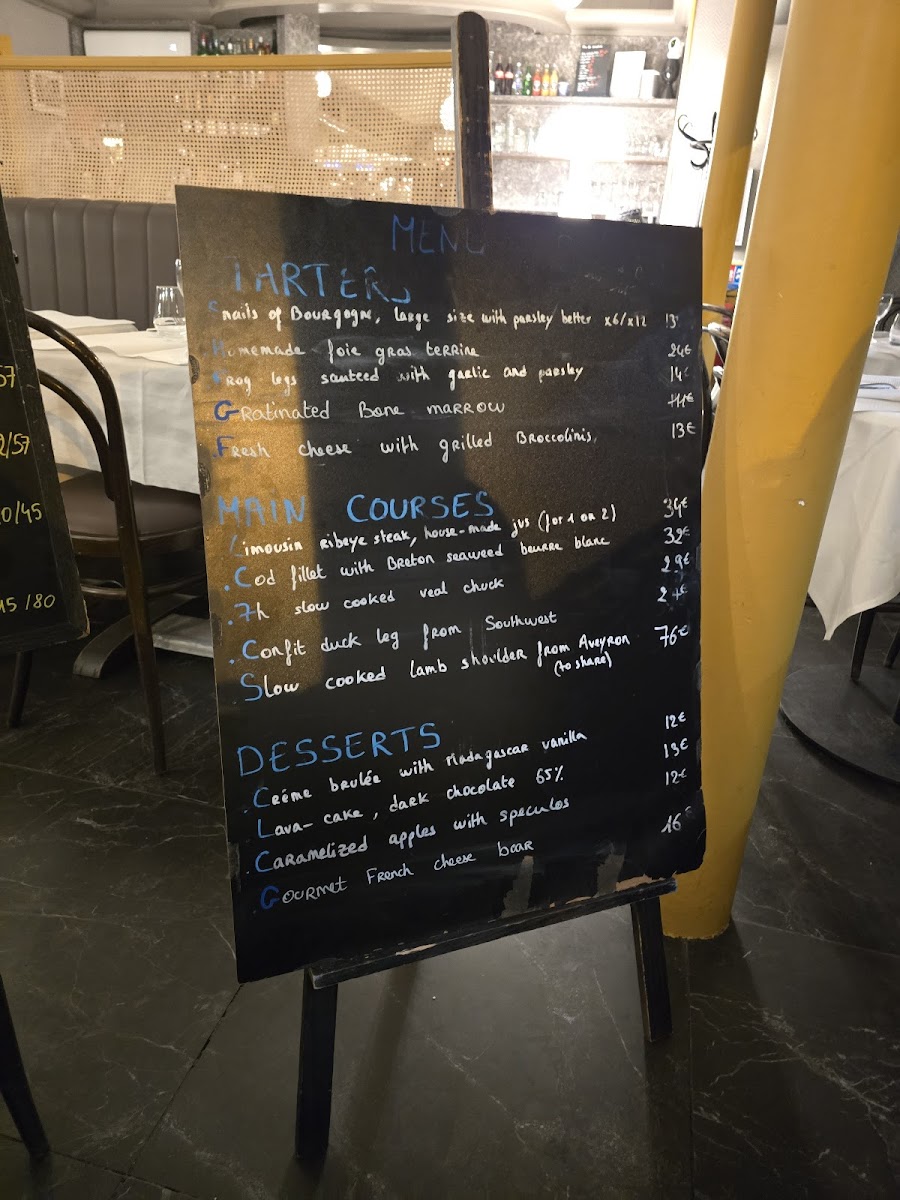 MENU
TARTERS
Snails of Bourgogne, large size with parsley better x6/x12 13
Homemade foie gras terrine 24€
Frog legs sauteed with garlic and parsley 14€
Gratinated Bone marrow 11€
Fresh cheese with grilled Broccolinis, 13€
MAIN COURSES
Limousin Ribeye steak, house-made jus (for 1 or 2) 34€
.Cod fillet with Breton seaweed beurre blanc 32€
.7h slow cooked veal chuck 29€
.Confit duck leg from Southwest
Slow cooked lamb shoulder from Aveyron 76€
(to share)
DESSERTS
.Crème brulée with Madagascar vanilla 12€
Lava-cake, dark chocolate 65% 13€
.Caramelized apples with speculos 12€
.Gourmet French cheese boar 16€
57
2/57
0/45
15/80